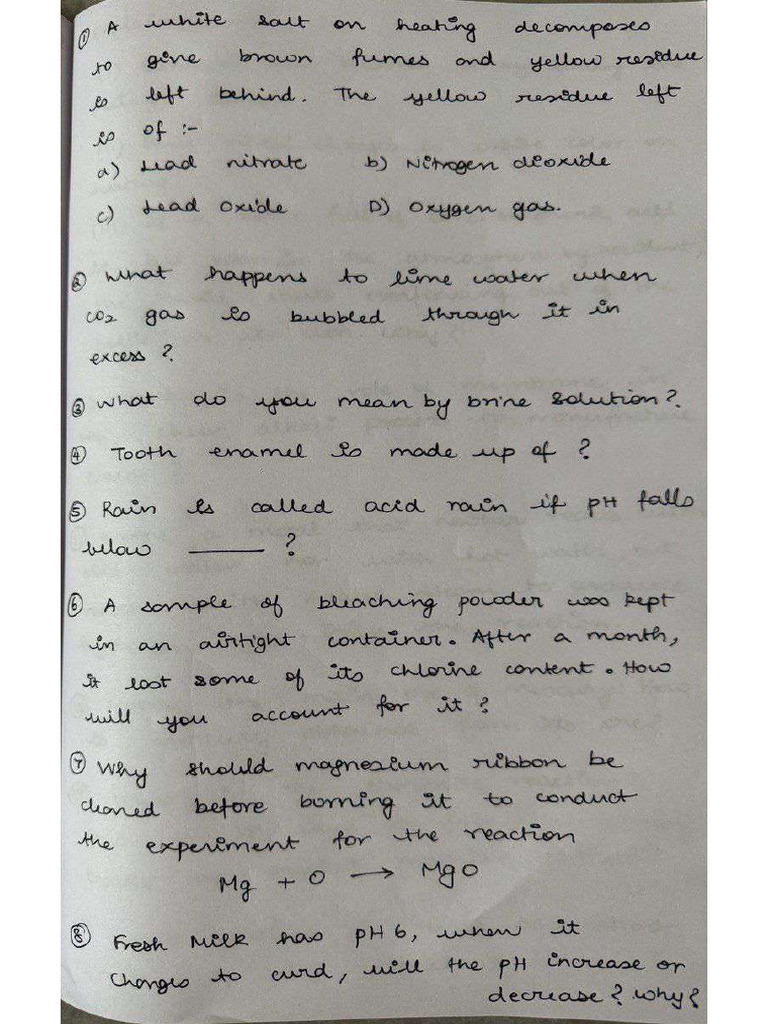 ① A white salt on heating decomposes
to give brown fumes and yellow residue
is left behind. The yellow residue left
is of :-
a) Lead nitrate b) Nitrogen dioxide
c) Lead Oxide D) Oxygen gas.
② What happens to lime water when
CO2 gas is bubbled through it in
excess ?
③ What do you mean by brine solution?
④ Tooth enamel is made up of ?
⑤ Rain is called acid rain if pH falls
below ______ ?
⑥ A sample of bleaching powder was kept
in an airtight container. After a month,
it lost some of its chlorine content. How
will you account for it ?
⑦ Why should magnesium ribbon be
cleaned before borning it to conduct
the experiment for the reaction
Mg + O → MgO
⑧ Fresh Milk has pH 6, when it
changes to curd, will the pH increase or
decrease ? Why ?